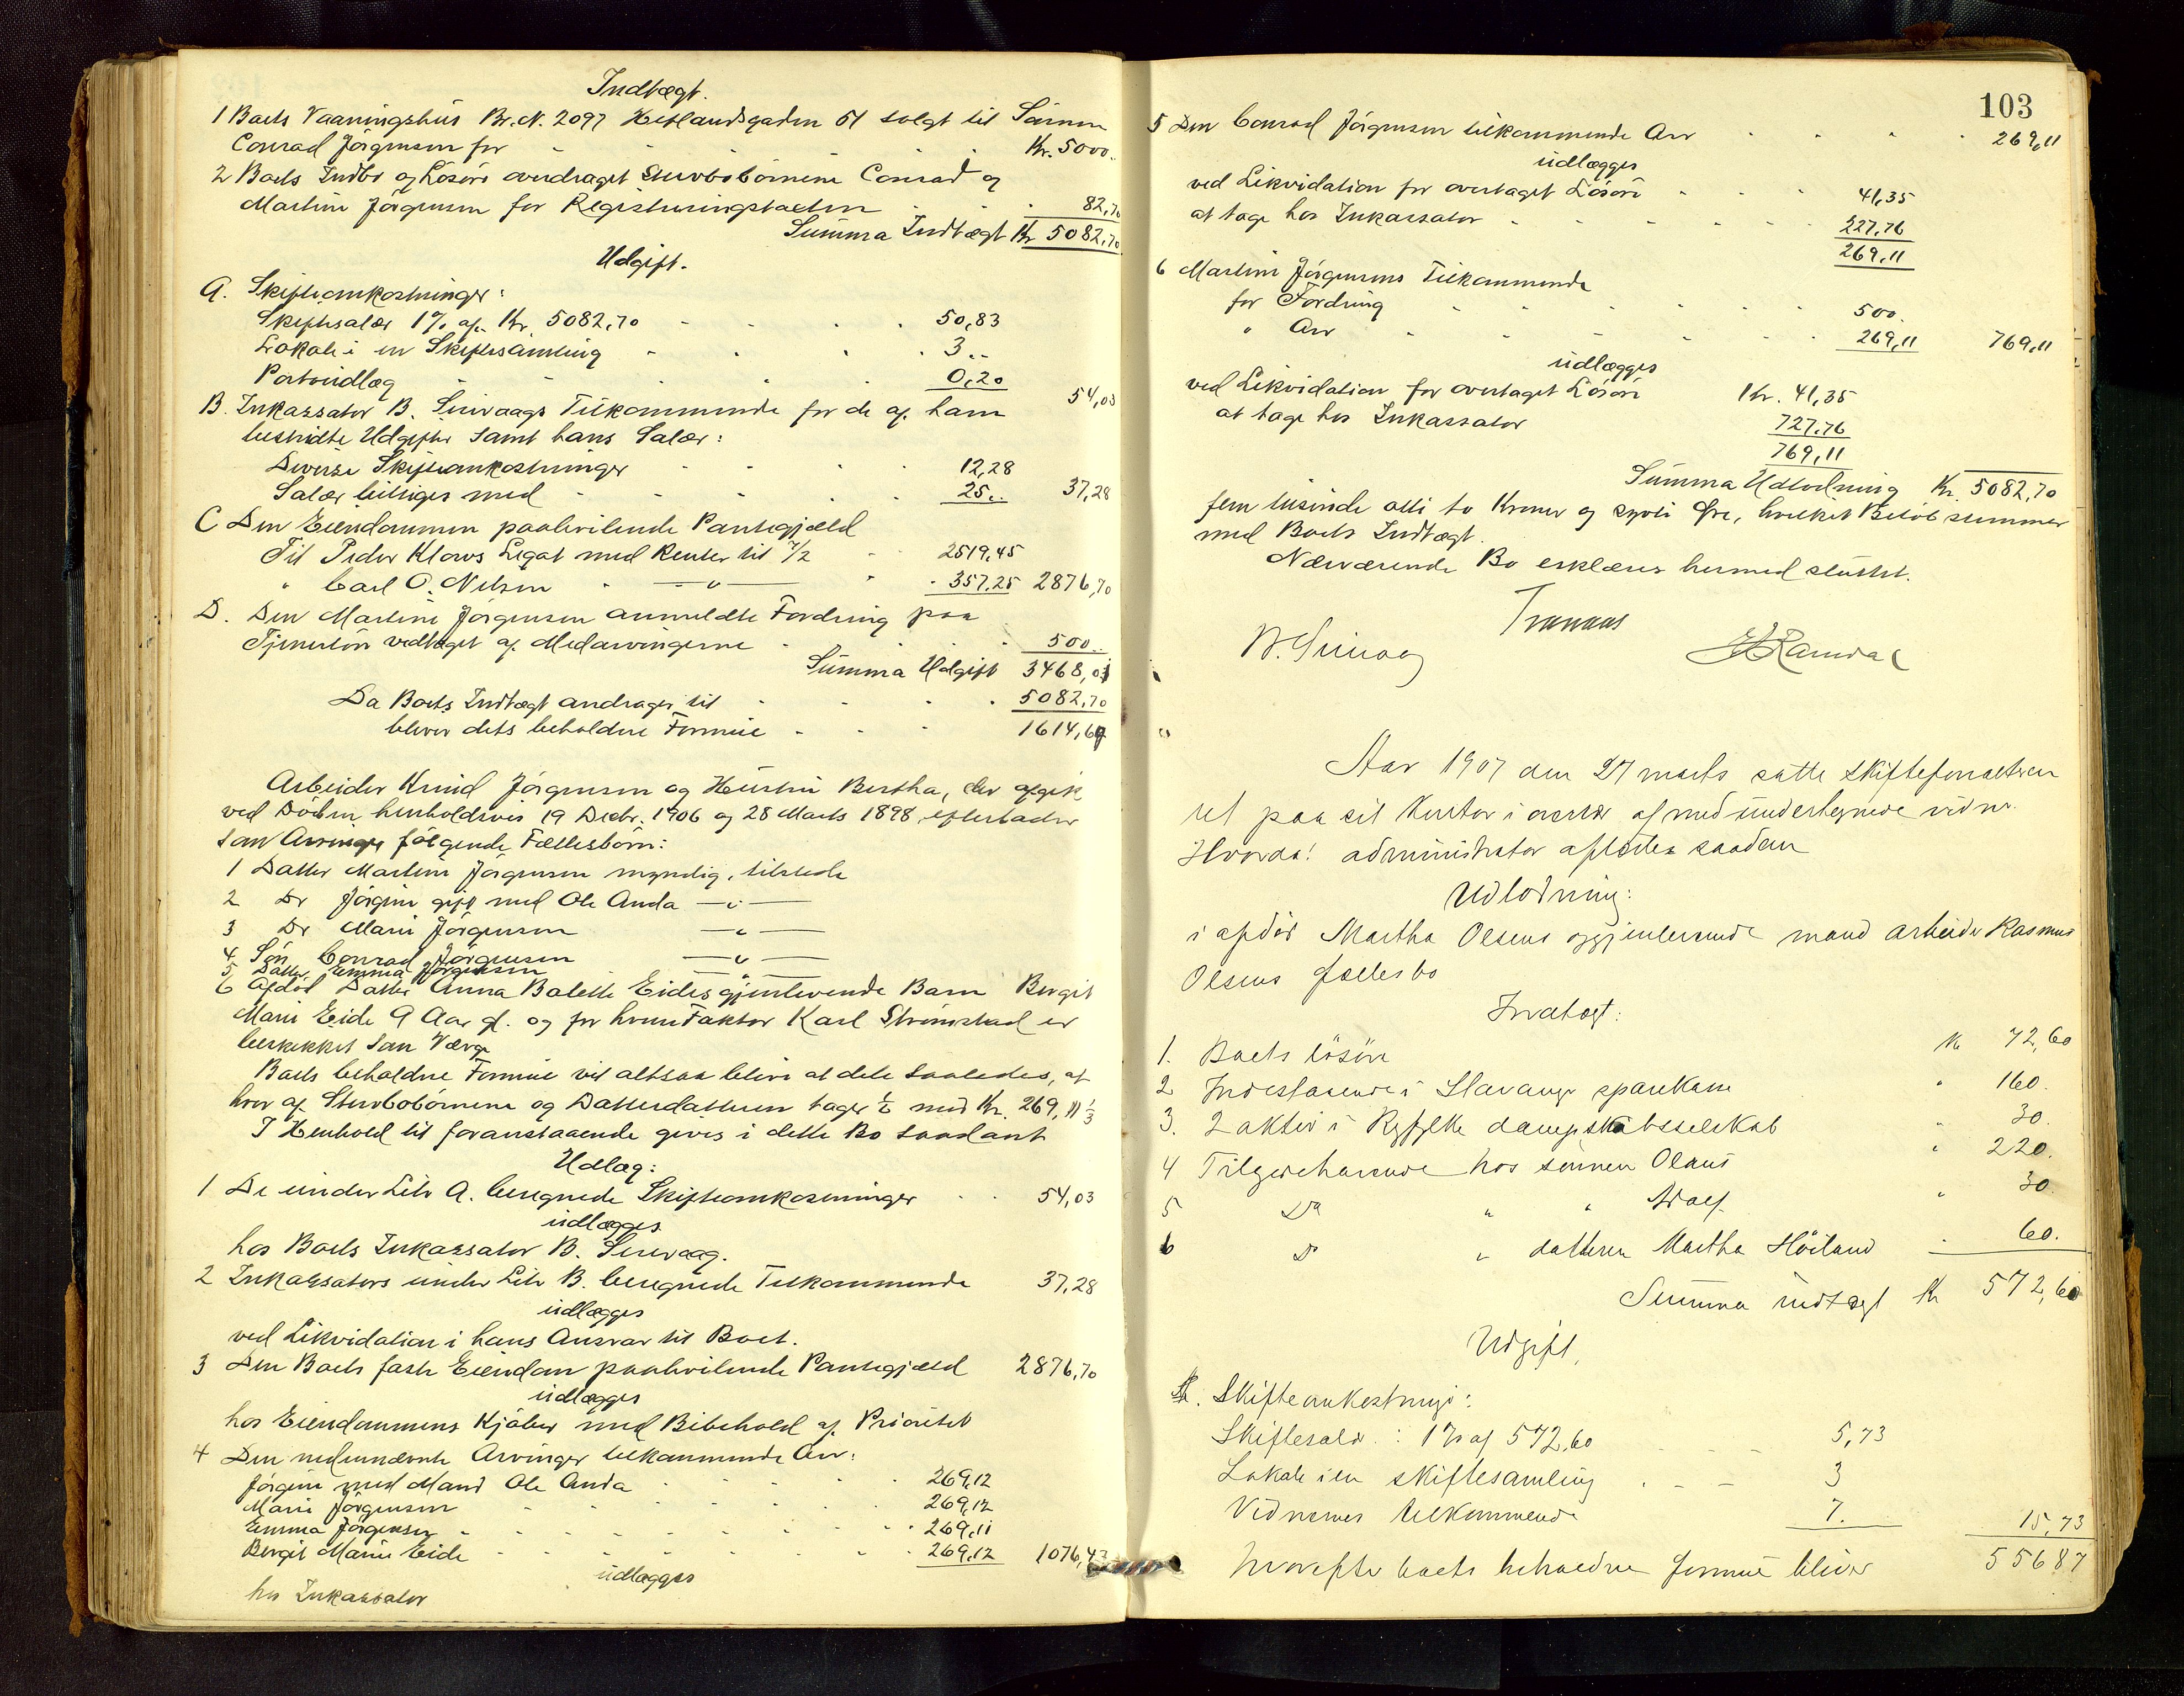 Indtægt.
1 Boets Vaaningshus Br.N. 2097 Hetlandsgaden 51 solgt til Sönnen
Conrad Jörgensen for Kr. 5000.
2 Boets Indbo og Lösöre overdraget Stervbobörnene Conrad og
Martine Jörgensen for Registreringstaxten 82,70
Summa Indtægt Kr 5082,70
Udgift.
A. Skifteomkostninger:
Skiftesalær 1% af Kr. 5082,70 50,83
Lokale i en Skiftesamling 3..
Portoudlæg 0,20 54,03
B. Inkassator B. Sirevaags Tilkommende for de af ham
bestridte Udgifter samt hans Salær:
Diverse Skifteomkostninger 12,28
Salær billiges med 25.. 37,28
C Den Eiendommen paahvilende Pantegjæld
Til Peder Klows Legat med Renter til 7/2 2519,45
" Carl O. Nilsen " — " — 357,25 2876,70
D. Den Martine Jörgensen anmeldte Fordring paa
Tjenerlön vedtaget af Medarvingerne 500..
Summa Udgift 3468,01
Da Boets Indtægt andrager til 5082,70
bliver dets beholdne Formue 1614,69
Arbeider Knud Jörgensen og Hustru Bertha, der afgik
ved Döden henholdsvis 19 Decbr. 1906 og 28 Marts 1898, efterlader
som Arvinger fölgende Fællesbörn:
1 Datter Martine Jörgensen myndig, tilstede
2 Do Jörgine gift med Ole Anda — " —
3 Do Marie Jörgensen — " —
4. Sön Conrad Jörgensen — " —
5, Datter, Emma Jörgensen — " —
6 Afdöd Datter Anna Bolette Eides gjenlevende Barn Bergit
Marie Eide 9 Aar gl. og for hvem Faktor Karl Strömstad er
beskikket som Værge
Boets beholdne Formue vil altsaa blive at dele saaledes, at
hver af Stervbobörnene og Datterdatteren tager 1/6 med Kr. 269,11 1/3
I Henhold til foranstaaende gives i dette Bo saadant
Udlæg:
1 De under Litr A. beregnede Skifteomkostninger 54,03
udlægges
hos Boets Inkassator B. Sirevaag.
2 Inkassators under Litr B. beregnede Tilkommende 37,28
udlægges
ved Likvidation i hans Ansvar til Boet.
3 Den Boets faste Eiendom paahvilende Pantegjæld 2876,70
udlægges
hos Eiendommens Kjöber med Bibehold af Prioritet
4 Den nedennævnte Arvinger tilkommende Arv:
Jörgine med Mand Ole Anda 269,12
Marie Jörgensen 269,12
Emma Jörgensen 269,11
Bergit Marie Eide 269,12 1076,47
udlægges
hos Inkassator
103
5 Den Conrad Jörgensen tilkommende Arv 269,11
udlægges
ved Likvidation for overtaget Lösöre 41,35
at tage hos Inkassator 227,76
269,11
6 Martine Jörgensens Tilkommende
for Fordring 500.
" Arv 269,11 769,11
udlægges
ved Likvidation for overtaget Lösöre Kr. 41,35
at tage hos Inkassator 727,76
769,11
Summa Udlodning Kr. 5082,70
fem tusinde otti to Kroner og sytti Öre, hvilket Belöb stemmer
med Boets Indtægt.
Nærværende Bo erklæres hermed sluttet.
Tranaas
B. Sirevaag Ramdal
Aar 1907 den 27 marts satte skifteforvalteren
ret paa sit Kontor i overvær af medundertegnede vidner.
Hvorda! administrator afsluttes saadan
Udlodning:
i afdöd Martha Olsens og gjenlevende mand arbeider Rasmus
Olsens fællesbo
Indtægt:
1. Boets lösöre Kr 72,60
2 Indestaaende i Stavanger sparekasse " 160.
3. 2 aktier i Ryfylke dampskibsselskab " 30.
4 Tilgodehavende hos sönnen Olaus " 220.
5 Do " " Adolf " 30.
6 Do " datteren Martha Höiland " 60.
Summa indtægt Kr 572,60
Udgift,
A. Skifteomkostninger:
Skiftesalær: 1% af 572,60 5,73
Lokale i en skiftesamling 3
Vidnernes tilkommende 7. 15,73
hvorefter boets beholdne formue bliver 556 87